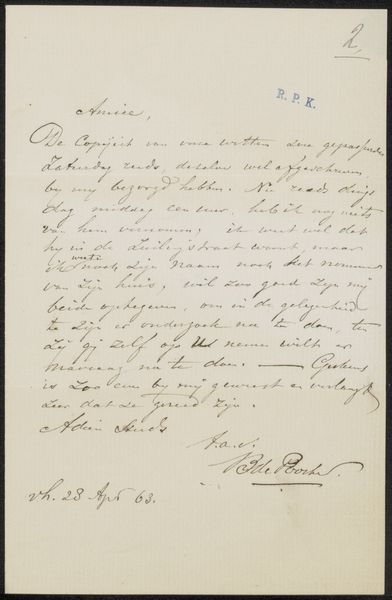 2
R. P. K.
Amice,
De Copijist van onze wetten zou gepasseerde
Zaturdag reeds, dezelve wel afgeschreven,
by my bezorgd hebben. Nu reeds dings
dag middag een uur, heb ik nog niets
van hem vernomen; ik weet wel dat
hy in de straat woont, maar
ik weet noch zijn naam noch het nommer
van zijn huis; wil zoo goed zijn mij
beide optegeven, om in de gelegenheid
te zijn er onderzoek na te doen, ten
zij gij zelf op U nemen wilt er
na te doen. —
is zoo even by mij geweest en verlangt
zeer dat ze gereed zijn.
Adieu
t.a.v.
B de Poorter
vh. 28 Apr 63.